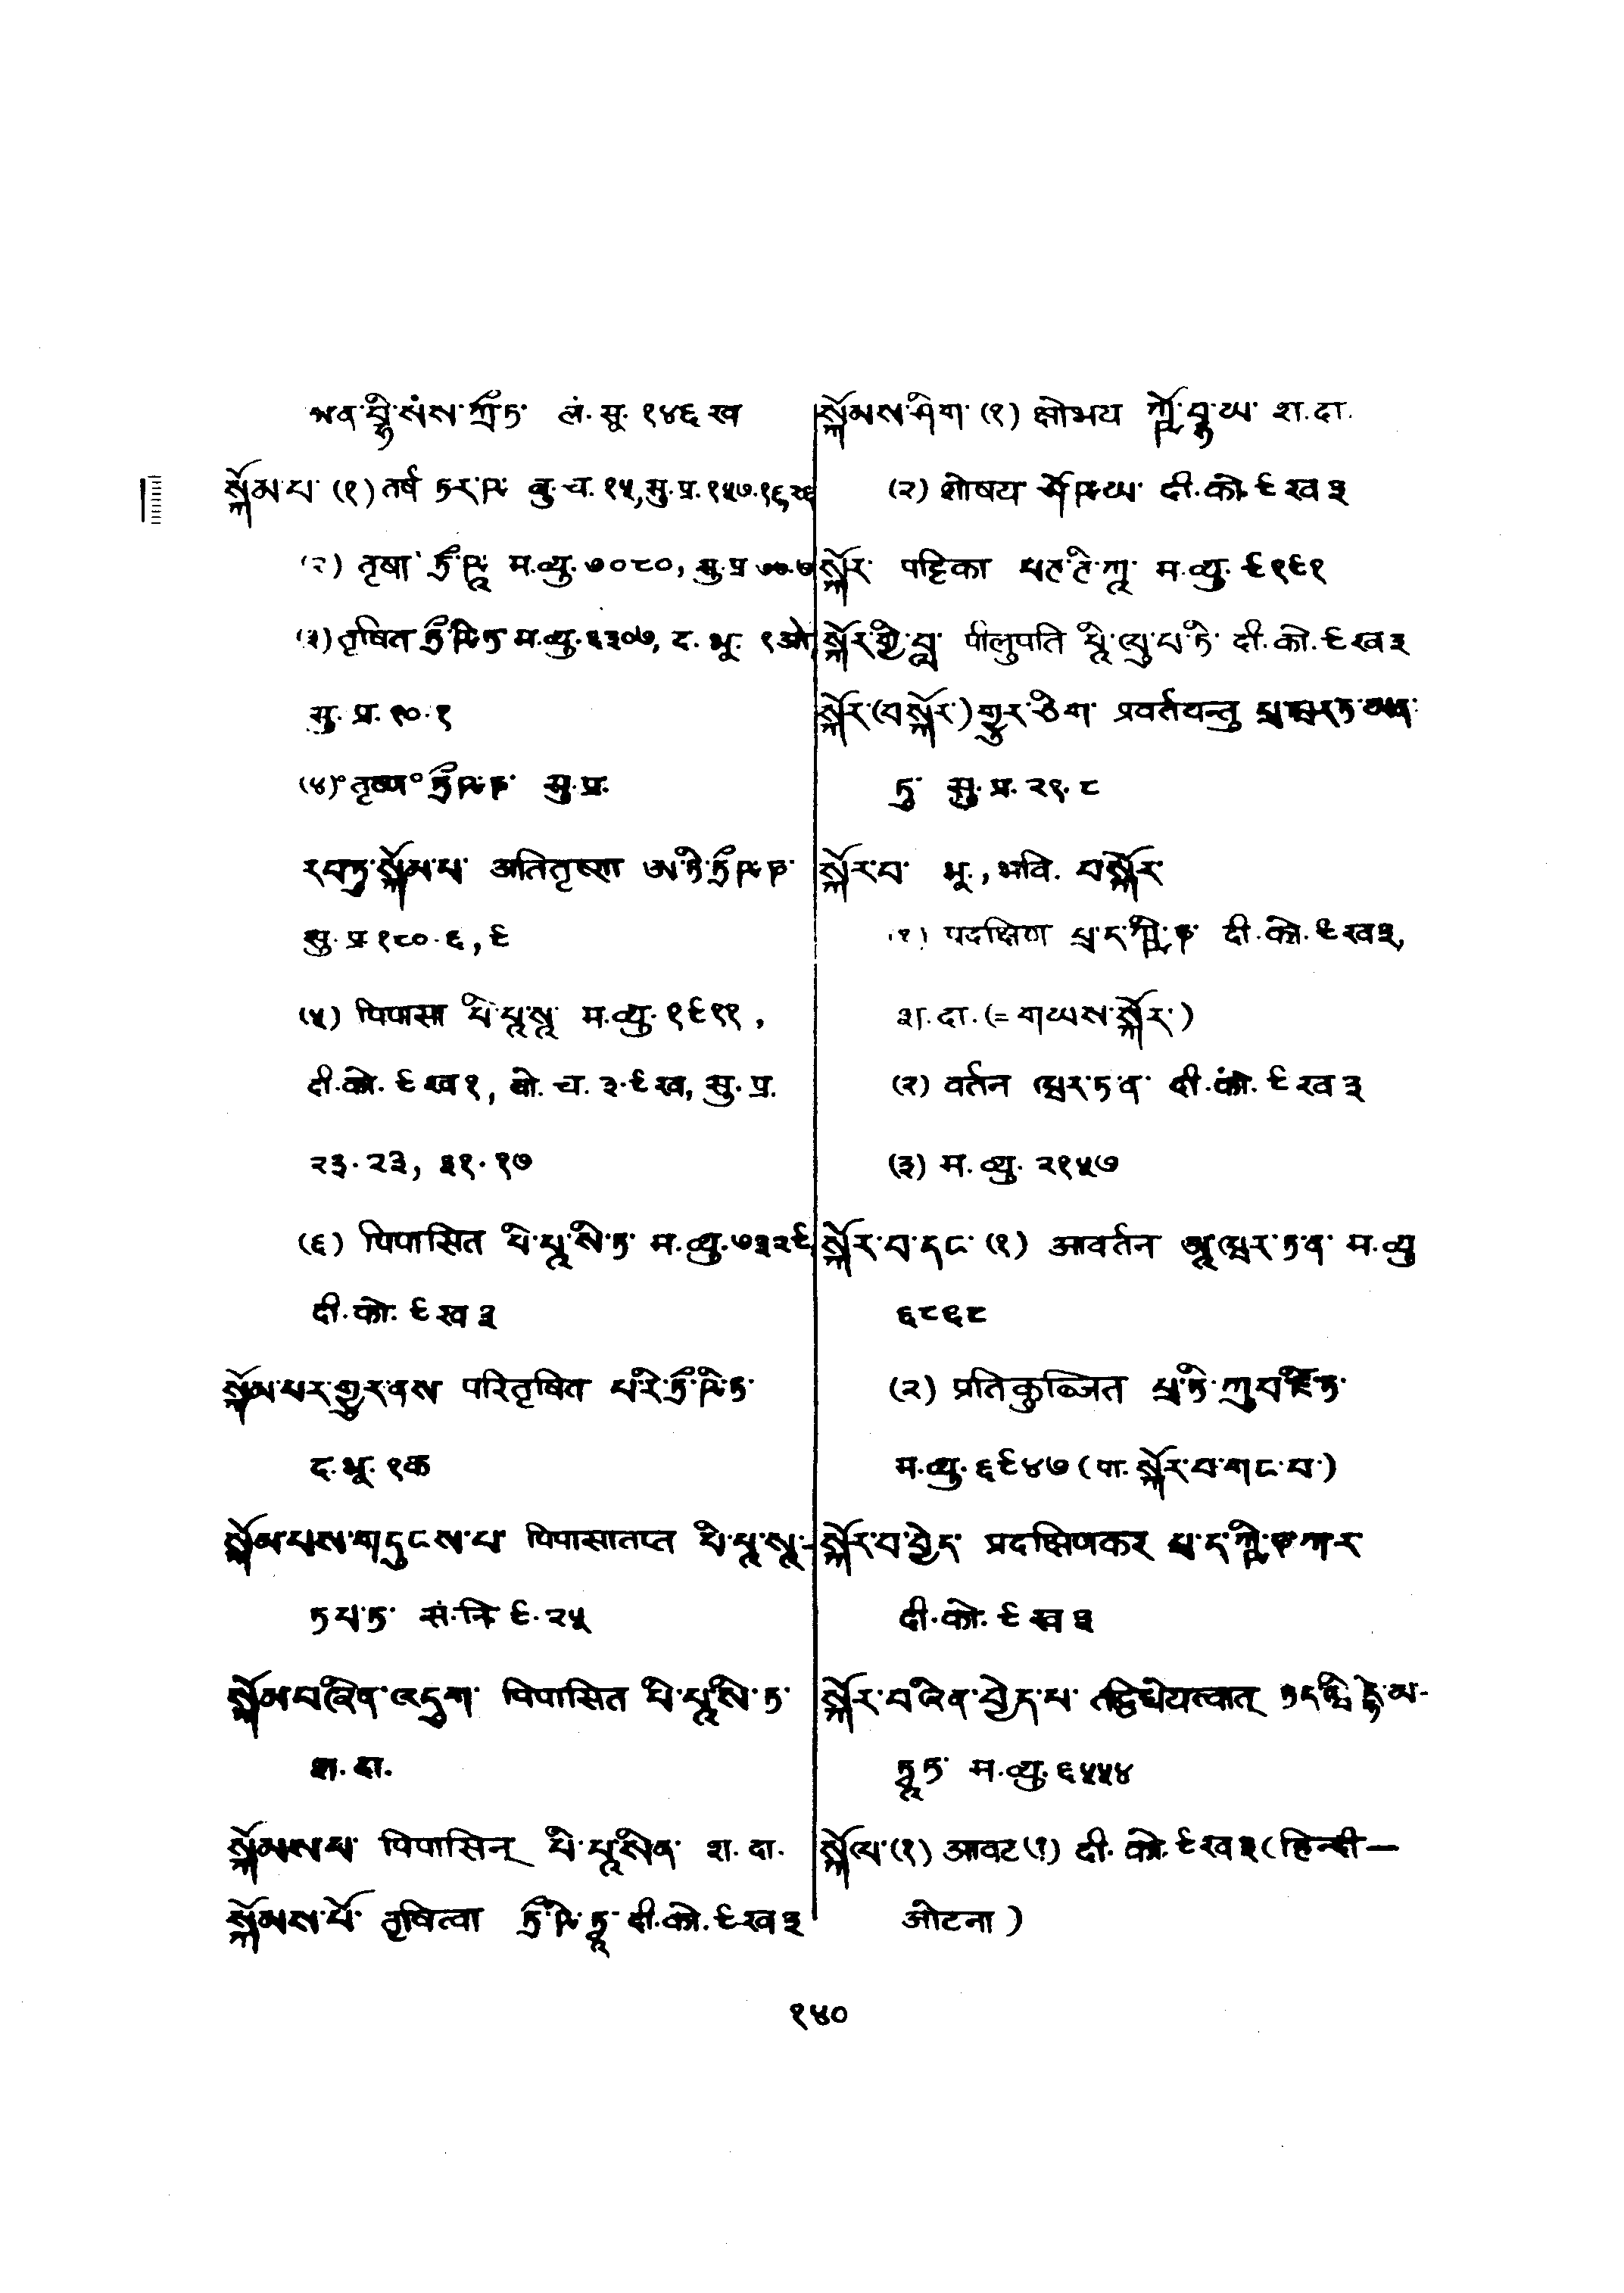 མན་བྷི་སཾས་ཀྲྀཏ་ लं. सू. १४६ ख
སྐོམ་པ་ (१) तर्ष ཏར་ཥ་ बु. च. १५, सु. प्र. १५७.१९,२६
(२) तृषा ཏྲྀ་ཥཱ་ म. व्यु. ७०८०, सु. प्र ७७.७
(३) तृषित ཏྲྀ་ཥི་ཏ म. व्यु. ६३०७, द. भू. १ओ,
सु. प्र. ९०.१
(४) ॰तृष्ण॰ ཏྲྀཥ་ཎ་ सु. प्र.
རབ་ཏུ་སྐོམ་པ་ अतितृष्णा ཨ་ཏི་ཏྲྀཥ་ཎ་
सु. प्र १८०.६, ९
(५) पिपासा པི་པཱ་སཱ་ म. व्यु. १९११,
दी. को. ९ ख १, बो. च. ३.९ख, सु. प्र.
२३.२३, ३१.१७
(६) पिपासित པི་པཱ་སི་ཏ་ म. व्यु. ७३२९,
दी. को. ९ ख ३
སྐོམ་པར་གྱུར་ནས परितृषित པ་རི་ཏྲྀ་ཥི་ཏ་
द. भू. १क
སྐོམ་པས་གདུངས་པ་ पिपासातप्त པི་པཱ་སཱ་-
ཏ་པ་ཏ་ सं. नि ९.२५
སྐོམ་བཞིན་འདུག་ पिपासित པི་པཱ་སི་ཏ་
श. दा.
སྐོམས་པ་ पिपासिन् པི་པཱ་སིན་ श. दा.
སྐོམས་པོ་ तृषित्वा ཏྲྀ་ཥི་ཏྭཱ་ दी. को. ९ख ३
སྐོམས་ཤིག་ (१) क्षोभय ཀྵོ་བྷ་ཡ་ श. दा.
(२) शोषय ཤོ་ཥ་ཡ་ दी. को. ९ ख ३
སྐོར་ पट्टिका པཊ་ཊི་ཀཱ་ म. व्यु. ९१९१
སྐོར་གྱི་བླ་ पीलुपति པཱི་ལུ་པ་ཏི་ दी. को. ९ख ३
སྐོར་(བསྐོར་)གྱུར་ཅིག་ प्रवर्तयन्तु པྲ་ཝར་ཏ་ཡན་
ཏུ་ सु. प्र. २९.८
སྐོར་བ་ भू., भवि. བསྐོར་
(१) पदक्षिण པྲ་ད་ཀྵི་ཎ་ दी. को. ९ख३,
श. दा. (= གཡས་སྐོར་)
(२) वर्तन ཝར་ཏ་ན་ दी. को. ९ ख ३
(३) म. व्यु. २१५७
སྐོར་བ་དང་ (१) आवर्तन ཨཱ་ཝར་ཏ་ན་ म. व्यु
६८६८
(२) प्रतिकुब्जित པྲ་ཏི་ཀུབ་ཛི་ཏ་
म. व्यु. ६९४७ (पा. སྐོར་བ་གང་བ་)
སྐོར་བ་བྱེད་ प्रदक्षिणकर པྲ་ད་ཀྵི་ཎ་ཀ་ར
दी. को. ९ ख ३
སྐོར་བ་བཞིན་བྱེད་པ་ तद्विधेयत्वात् ཏད་ཝི་དྷེ་ཡ་-
ཏྭཱ་ཏ་ म. व्यु. ६५५४
སྐོལ་ (१) आवट (!) दी. को. ९ख ३ (हिन्दी —
ओटना )
१४०